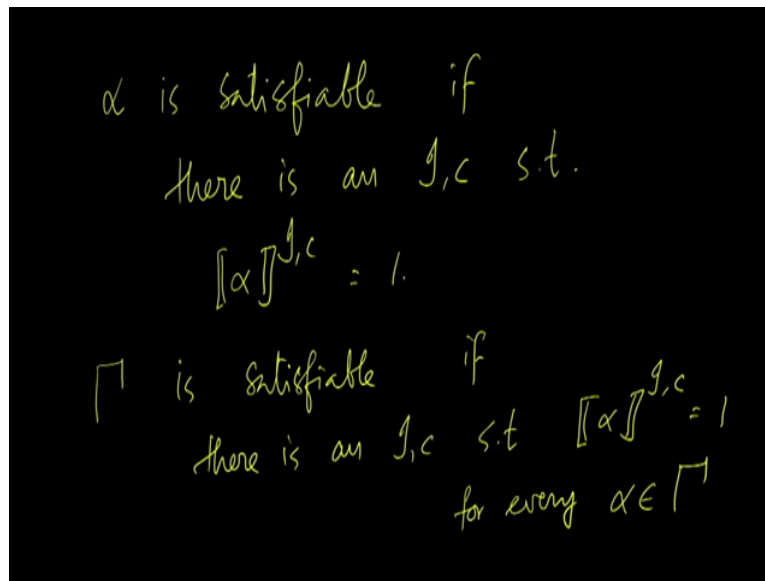 α is satisfiable if
there is an I,c s.t.
⟦α⟧^I,c = 1.
Γ is satisfiable if
there is an I,c s.t ⟦α⟧^I,c = 1
for every α ∈ Γ